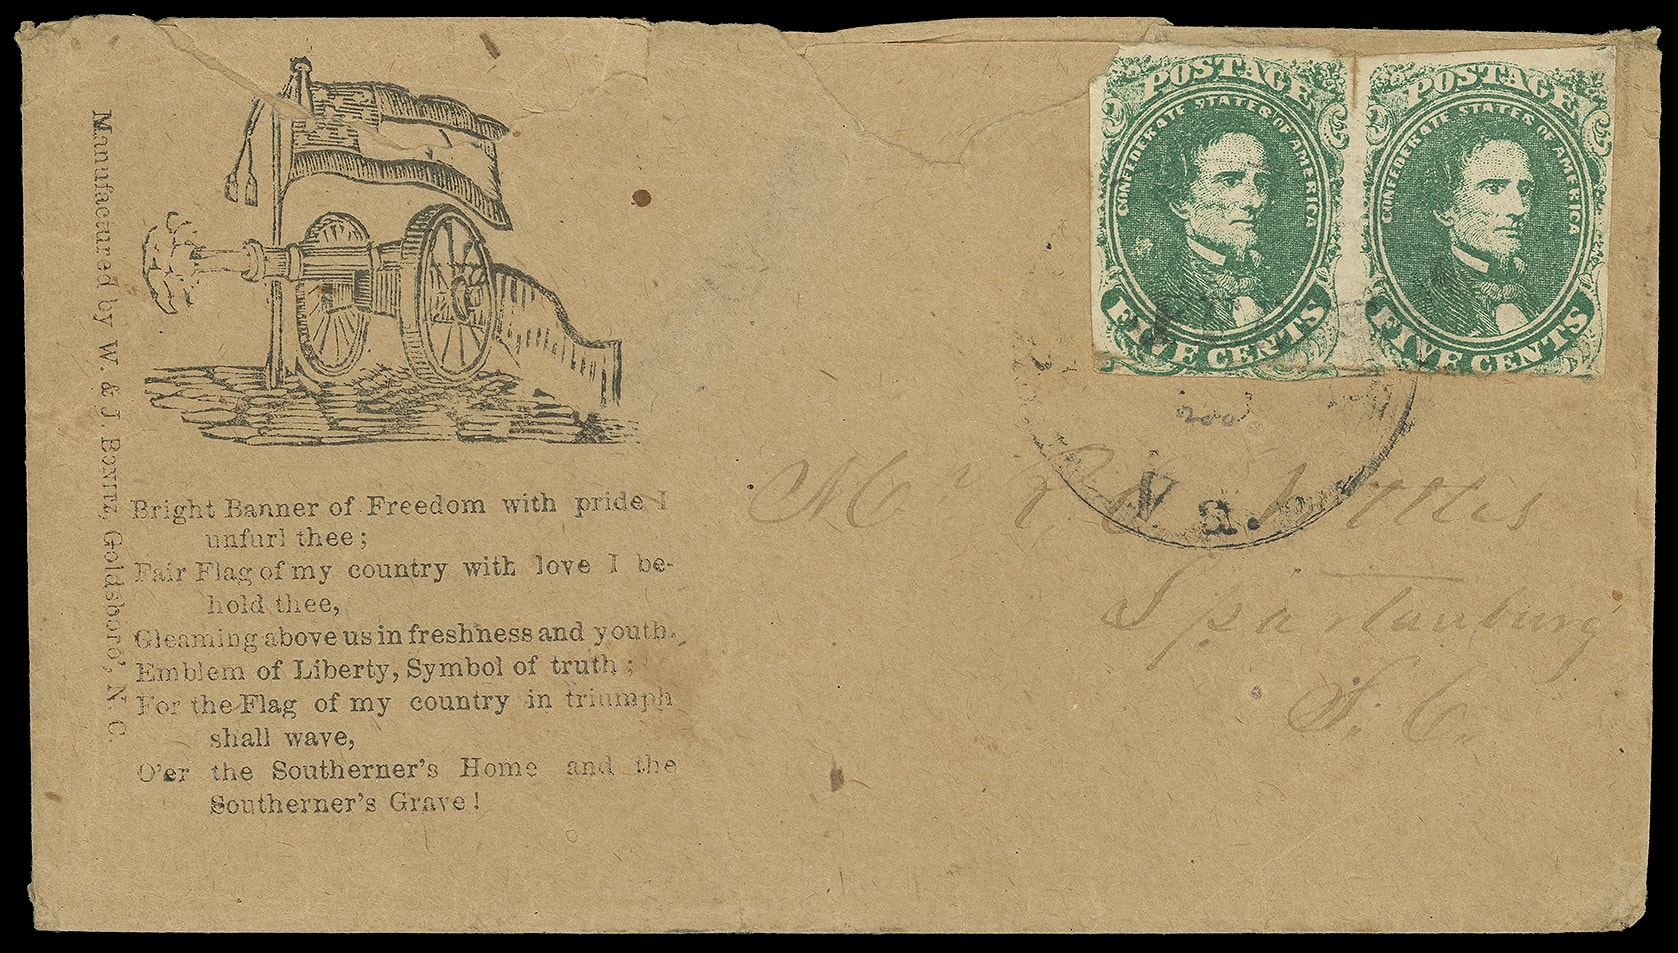 Manufactured by W. & J. Bonitz, Goldsboro', N. C.
Bright Banner of Freedom with pride I
unfurl thee;
Fair Flag of my country with love I be-
hold thee,
Gleaming above us in freshness and youth,
Emblem of Liberty, Symbol of truth;
For the Flag of my country in triumph
shall wave,
O'er the Southerner's Home and the
Southerner's Grave!
POSTAGE
CONFEDERATE STATES OF AMERICA
FIVE CENTS
POSTAGE
CONFEDERATE STATES OF AMERICA
FIVE CENTS
Va.
200
Mr
Spartanburg
S. C.